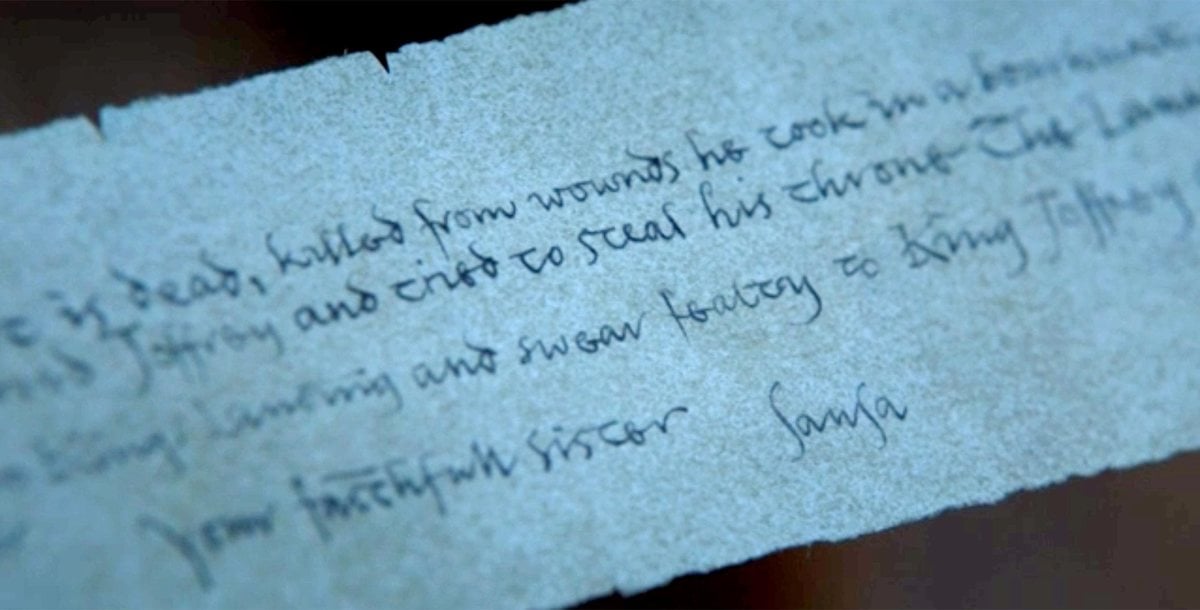 is dead, killed from wounds he took in a
Joffrey and tried to steal his throne The
Lansing and swear fealty to King Joffrey
your faithfull sister Sansa